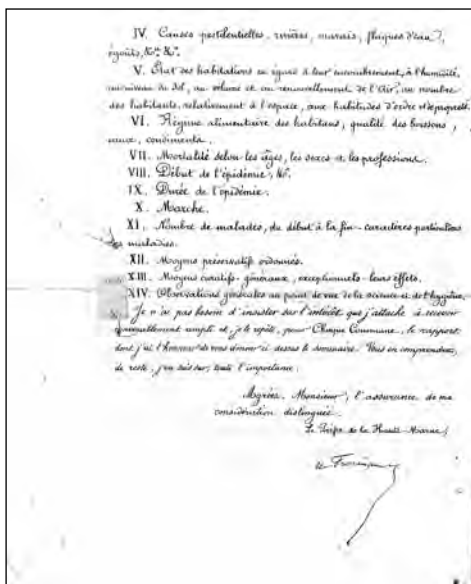 IV. Causes pestilentielles, rivières, marais, flaques d'eau,
égouts, &c. &c.
V. État des habitations eu égard à leur encombrement, à l'humidité,
au niveau du sol, au volume et au renouvellement de l'Air, au nombre
des habitants, relativement à l'espace, aux habitudes d'ordre et de propreté.
VI. Régime alimentaire des habitans, qualité des boissons,
eaux, condiments.
VII. Mortalité selon les âges, les sexes et les professions.
VIII. Début de l'épidémie, &c.
IX. Durée de l'épidémie.
X. Marche.
XI. Nombre de malades, du début à la fin - caractères particuliers
des maladies.
XII. Moyens préservatifs ordonnés.
XIII. Moyens curatifs - généraux, exceptionnels - leurs effets.
XIV. Observations générales au point de vue de la science et de l'hygiène.
Je n'ai pas besoin d'insister sur l'intérêt que j'attache à recevoir
rempli et, je le répète, pour Chaque Commune, le rapport
dont j'ai l'honneur de vous donner ci dessus le sommaire. Vous en comprendrez,
de reste, j'en suis sur, toute l'importance.
Agréez, Monsieur, l'assurance de ma
considération distinguée.
Le Préfet de la Haute-Marne,